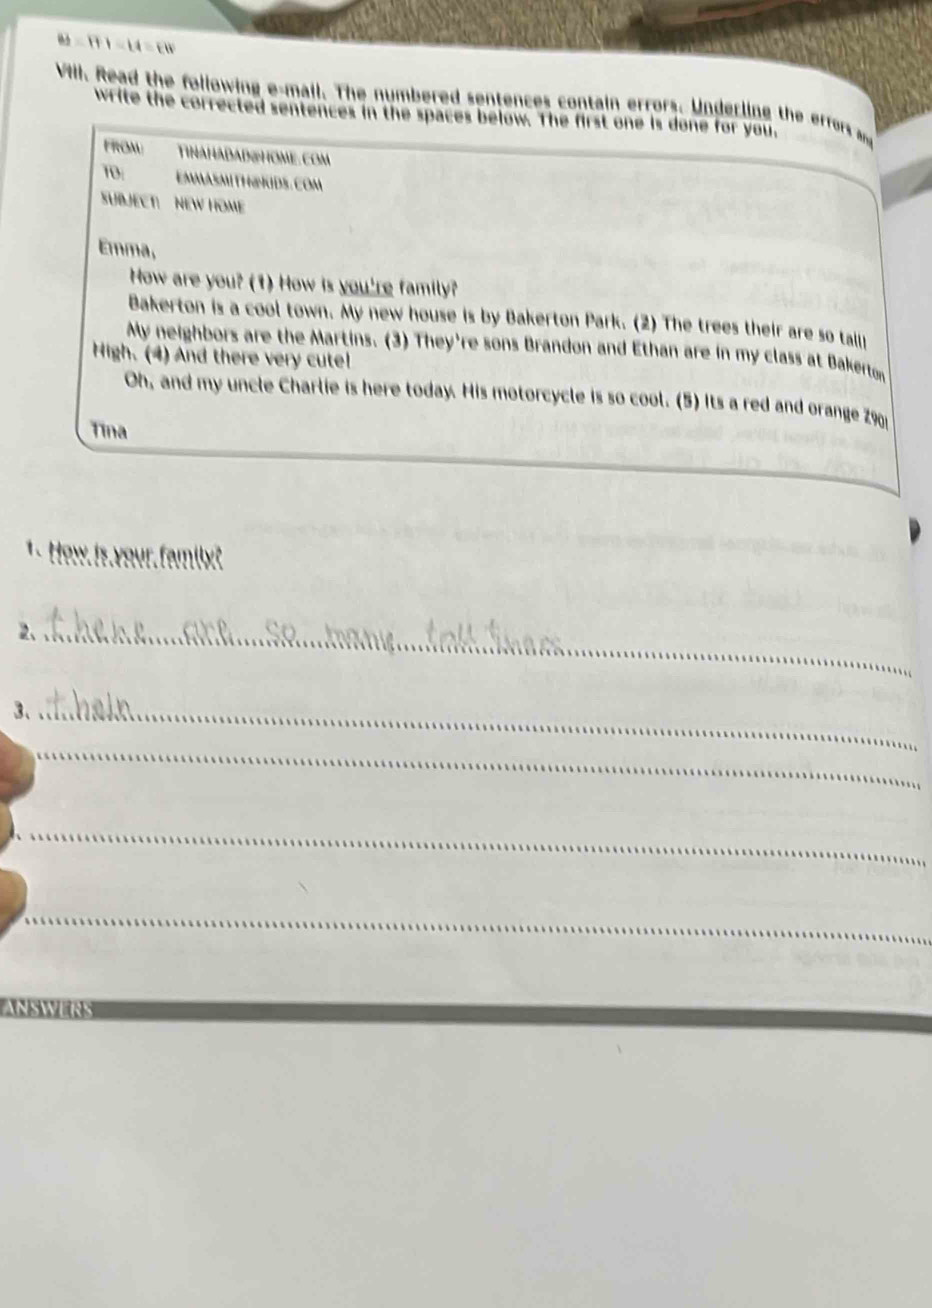 VIII. Read the following e-mail. The numbered sentences contain errors. Underling the errors and
write the corrected sentences in the spaces below. The first one is done for you.
FROM: TINAHADAD@HOME.COM
TO: EMMASMITH@KIDS.COM
SUBJECT: NEW HOME
Emma,
How are you? (1) How is you're family?
Bakerton is a cool town. My new house is by Bakerton Park. (2) The trees their are so tall!
My neighbors are the Martins. (3) They're sons Brandon and Ethan are in my class at Bakerton
High. (4) And there very cute!
Oh, and my uncle Charlie is here today. His motorcycle is so cool. (5) Its a red and orange Z90!
Tina
1. How is your family?
2. there are so many tall
3. their
ANSWERS